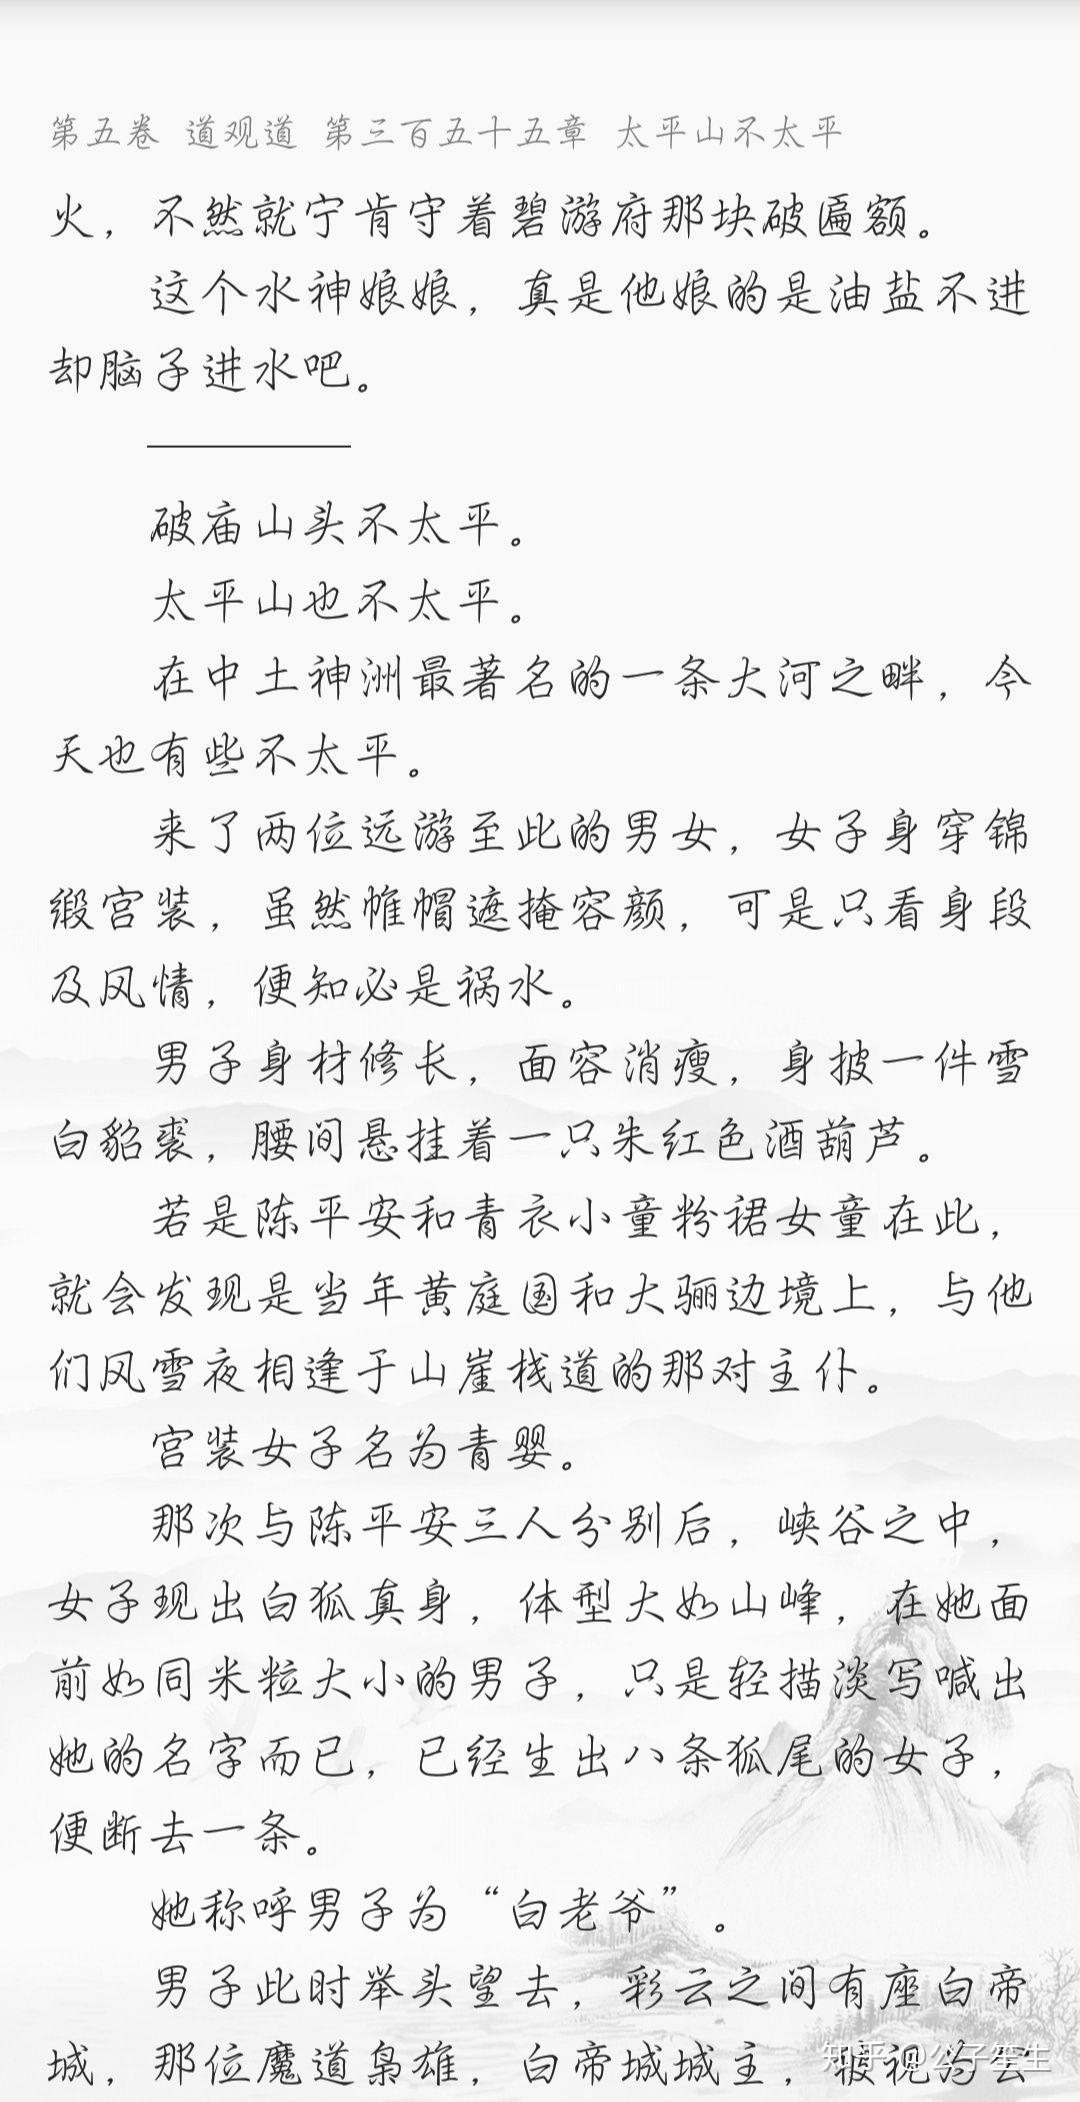 第五卷 道观道 第三百五十五章 太平山不太平
火，不然就宁肯守着碧游府那块破匾额。
这个水神娘娘，真是他娘的是油盐不进
却脑子进水吧。
————
破庙山头不太平。
太平山也不太平。
在中土神洲最著名的一条大河之畔，今
天也有些不太平。
来了两位远游至此的男女，女子身穿锦
缎宫装，虽然帷帽遮掩容颜，可是只看身段
及风情，便知必是祸水。
男子身材修长，面容消瘦，身披一件雪
白貂裘，腰间悬挂着一只朱红色酒葫芦。
若是陈平安和青衣小童粉裙女童在此，
就会发现是当年黄庭国和大骊边境上，与他
们风雪夜相逢于山崖栈道的那对主仆。
宫装女子名为青婴。
那次与陈平安三人分别后，峡谷之中，
女子现出白狐真身，体型大如山峰，在她面
前如同米粒大小的男子，只是轻描淡写喊出
她的名字而已，已经生出八条狐尾的女子，
便断去一条。
她称呼男子为“白老爷”。
男子此时举头望去，彩云之间有座白帝
城，那位魔道枭雄，白帝城城主，被视为云
知乎 @公子笙生